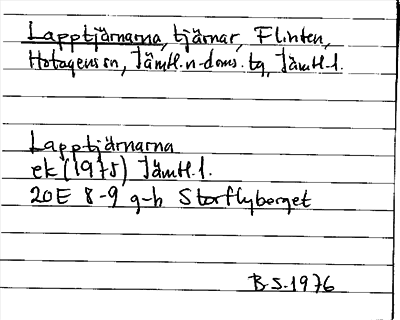 Lapptjärnarna, tjärnar, Flinten,
Hotagens sn, Jämtl. n. doms. tg, Jämtl. l.
Lapptjärnarna
ek (1975) Jämtl. l.
20E 8-9 g-h Storflyberget
B.S. 1976